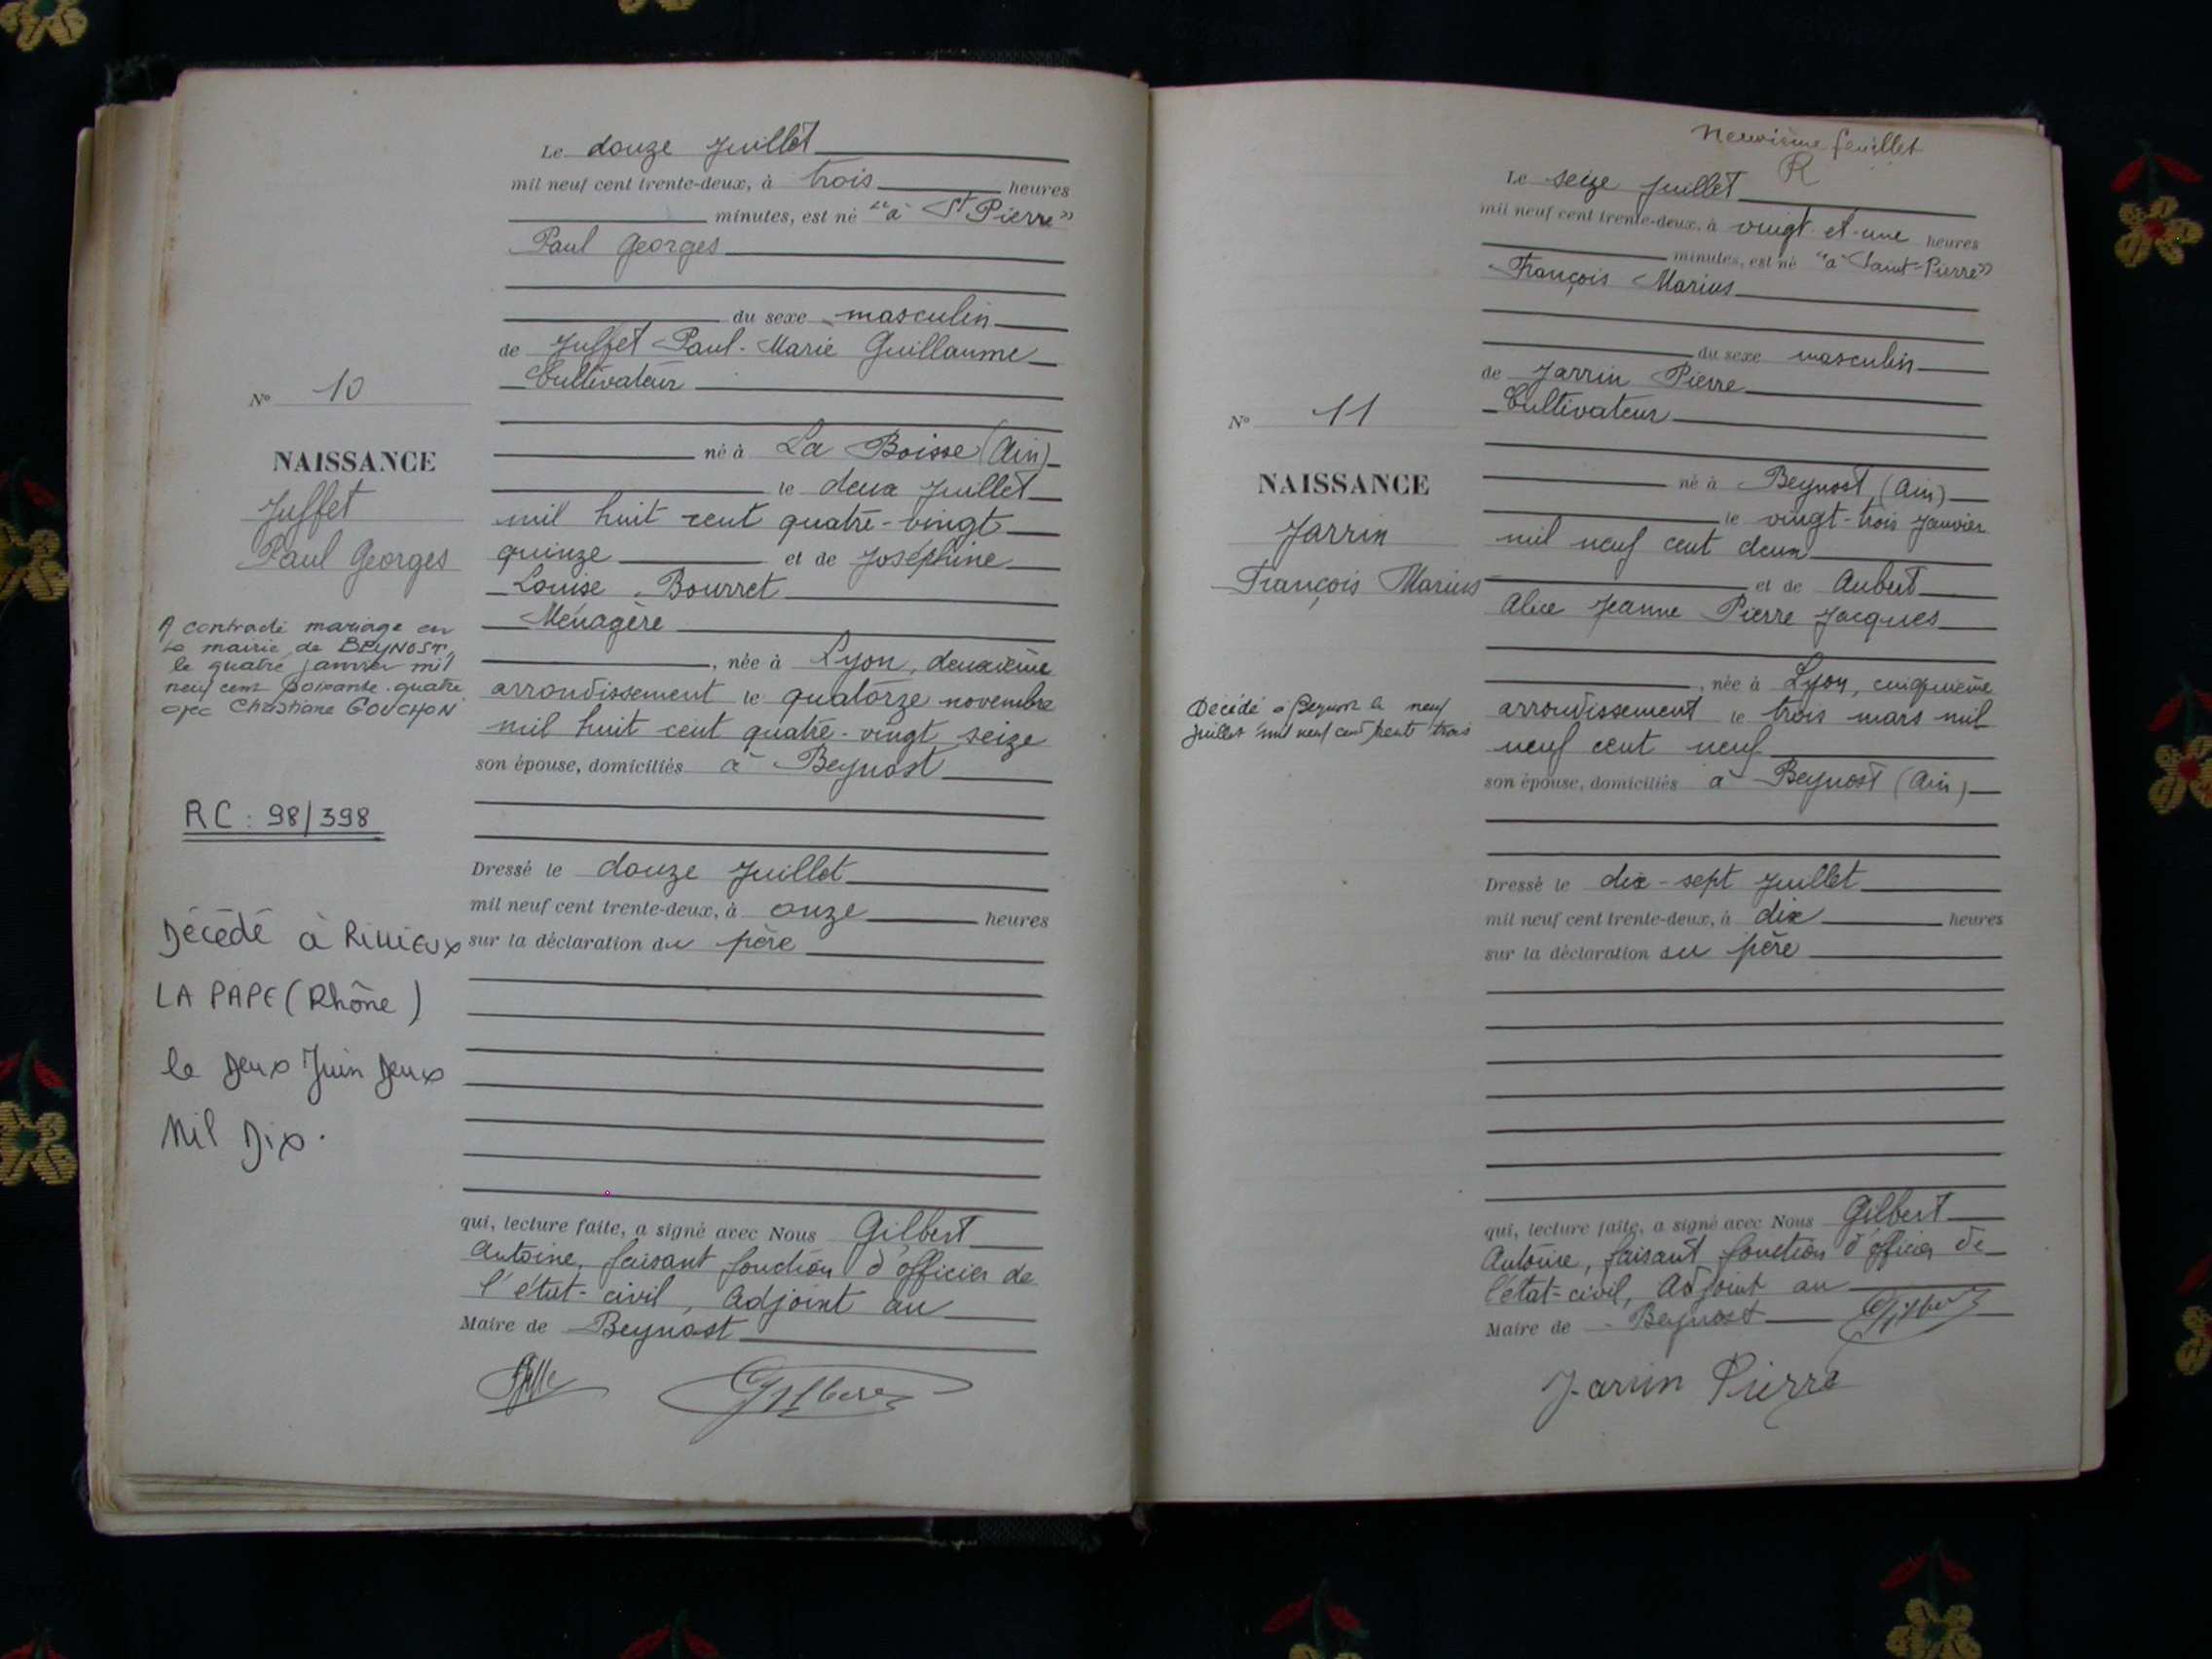 Le douze Juillet
mil neuf cent trente-deux, à trois heures
minutes, est né "à St Pierre"
Paul Georges
du sexe masculin
de Juffet Paul-Marie Guillaume
Cultivateur
N° 10
né à La Boisse (Ain)
NAISSANCE
le deux Juillet
Juffet
mil huit cent quatre-vingt
Paul Georges
quinze et de Joséphine
Louise Bourret
Ménagère
A contracté mariage en
la mairie de BEYNOST,
le quatre janvier mil
neuf cent soixante-quatre
avec Christiane GOUCHON
née à Lyon, deuxième
arrondissement le quatorze novembre
mil huit cent quatre-vingt seize
son épouse, domiciliés à Beynost
RC : 98/398
Dressé le douze Juillet
mil neuf cent trente-deux, à onze heures
sur la déclaration du père
Décédé à Rillieux
LA PAPE (Rhône)
le Deux Juin Deux
Mil Dix.
qui, lecture faite, a signé avec Nous Gilbert
Antoine, faisant fonction d'officier de
l'état-civil, Adjoint au
Maire de Beynost
Gilbert
Neuvième feuillet
R
Le seize Juillet
mil neuf cent trente-deux, à vingt-et-une heures
minutes, est né "à Saint-Pierre"
François Marius
du sexe masculin
de Jarrin Pierre
Cultivateur
N° 11
né à Beynost (Ain)
NAISSANCE
le vingt-trois Janvier
Jarrin
mil neuf cent deux
François Marius
et de Aubert
Alice Jeanne Pierre Jacques
née à Lyon, cinquième
Décédé à Beynost le neuf
juillet mil neuf cent trente trois
arrondissement le trois mars mil
neuf cent neuf
son épouse, domiciliés à Beynost (Ain)
Dressé le dix-sept Juillet
mil neuf cent trente-deux, à dix heures
sur la déclaration du père
qui, lecture faite, a signé avec Nous Gilbert
Antoine, faisant fonction d'officier de
l'état-civil, Adjoint au
Maire de Beynost Gilbert
Jarrin Pierre